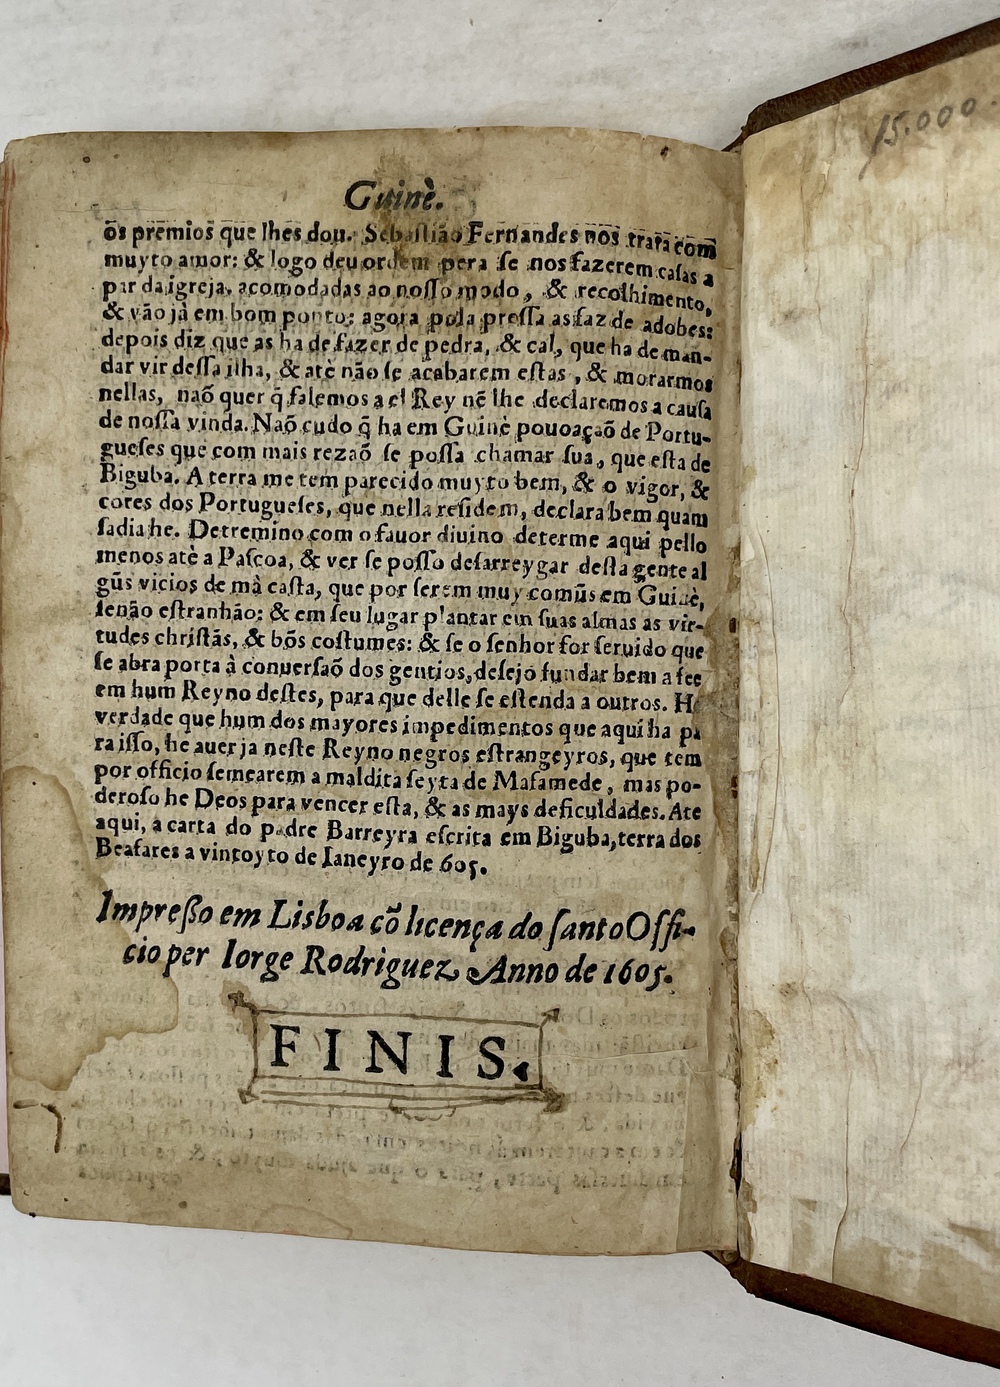 Guinè.
os premios que lhes dou. Sebastião Fernandes nos trata com
muyto amor: & logo deu ordem pera se nos fazerem casas a
par da igreja, acomodadas ao nosso modo, & recolhimento,
& vão jà em bom ponto: agora pola pressa as faz de adobes:
depois diz que as ha de fazer de pedra, & cal, que ha de man-
dar vir dessa ilha, & atè não se acabarem estas, & morarmos
nellas, naõ quer q̃ falemos a el Rey nẽ lhe declaremos a causa
de nossa vinda. Naõ cudo q̃ ha em Guinè pouoaçaõ de Portu-
gueses que com mais rezaõ se possa chamar sua, que esta de
Biguba. A terra me tem parecido muyto bem, & o vigor, &
cores dos Portugueses, que nella residem, declara bem quam
sadia he. Detremino com o fauor diuino determe aqui pello
menos atè a Pascoa, & ver se posso desarreygar desta gente al
gũs vicios de mà casta, que por serem muy comũs em Guinè,
senão estranhão: & em seu lugar plantar em suas almas as vir-
tudes christãs, & bõs costumes: & se o senhor for seruido que
se abra porta à conuersaõ dos gentios, desejo fundar bem a fee
em hum Reyno destes, para que delle se estenda a outros. He
verdade que hum dos mayores impedimentos que aqui ha pa
ra isso, he auer ja neste Reyno negros estrangeyros, que tem
por officio semearem a maldita seyta de Mafamede, mas po-
deroso he Deos para vencer esta, & as mays deficuldades. Ate
aqui, a carta do padre Barreyra escrita em Biguba, terra dos
Beafares a vintoyto de Ianeyro de 605.
Impresso em Lisboa cõ licença do santo Offi-
cio per Iorge Rodriguez Anno de 1605.
FINIS.
15.000.